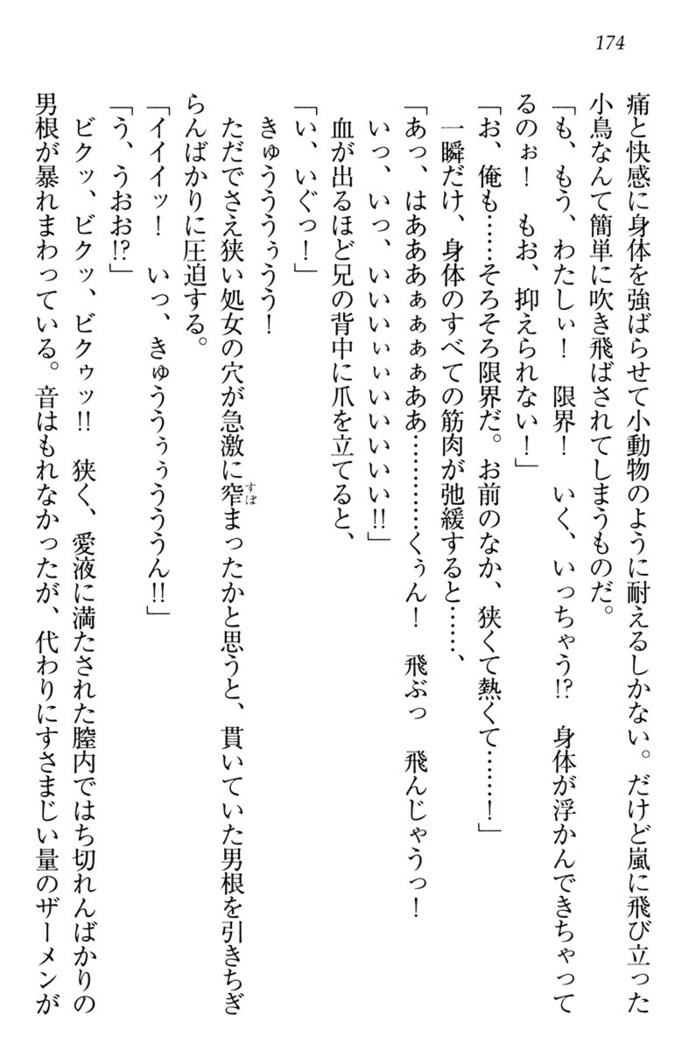 174
痛と快感に身体を強ばらせて小動物のように耐えるしかない。だけど嵐に飛び立った
小鳥なんて簡単に吹き飛ばされてしまうものだ。
「も、もう、わたしぃ！　限界！　いく、いっちゃう!?　身体が浮かんできちゃって
るのぉ！　もお、抑えられない！」
「お、俺も……そろそろ限界だ。お前のなか、狭くて熱くて……！」
一瞬だけ、身体のすべての筋肉が弛緩すると……、
「あっ、はあああぁぁぁぁああ…………くぅん！　飛ぶっ　飛んじゃうっ！
いっ、いっ、いいいぃぃいいいいい!!」
血が出るほど兄の背中に爪を立てると、
「い、いぐっ！」
きゅうううぅうう！
ただでさえ狭い処女の穴が急激に窄まったかと思うと、貫いていた男根を引きちぎ
らんばかりに圧迫する。
「イイイッ！　いっ、きゅううぅぅうううん!!」
「う、うおお!?」
ビクッ、ビクッ、ビクゥッ!!　狭く、愛液に満たされた膣内ではち切れんばかりの
男根が暴れまわっている。音はもれなかったが、代わりにすさまじい量のザーメンが